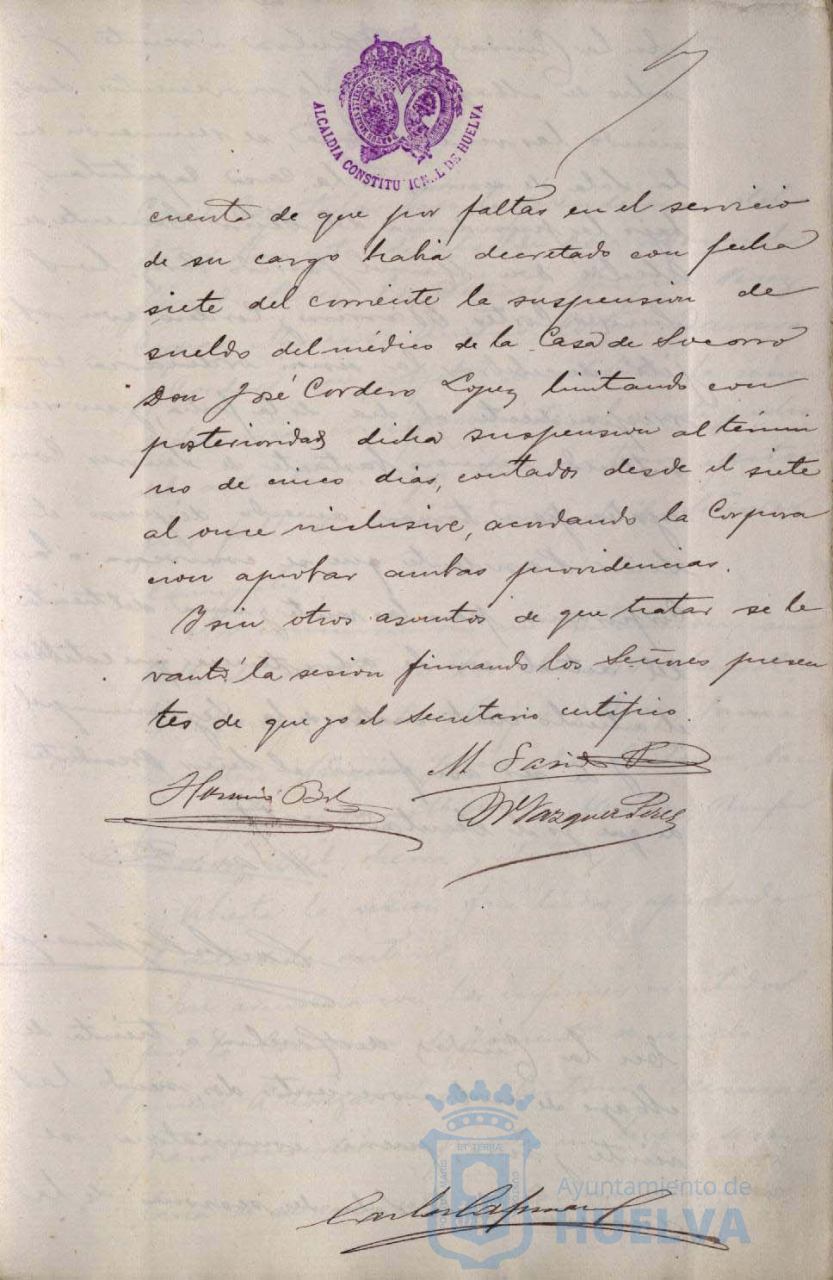 ALCALDIA CONSTITUCIONAL DE HUELVA
cuenta de que por faltas en el servicio
de su cargo habia decretado con fecha
siete del corriente la suspension de
sueldo del médico de la Casa de Socorro
Don José Cordero Lopez limitando con
posterioridad dicha suspension al térmi
no de cinco dias, contados desde el siete
al once inclusive, acordando la Corpora
cion aprobar ambas providencias.
Y sin otros asuntos de que tratar se le
vantó la sesion firmando los Señores presen
tes de que yo el Secretario certifico.
M
Vazquez Perez
Ayuntamiento de
HUELVA